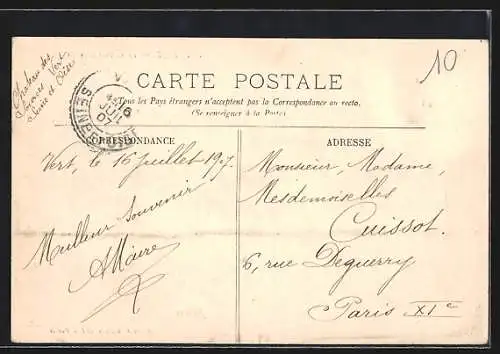 Château des
Sources Vert
Seine et Oise
10
CARTE POSTALE
Tous les Pays étrangers n'acceptent pas la Correspondance au recto.
(Se renseigner à la Poste)
16
JUIL
07
SEINE-ET-OISE
CORRESPONDANCE
Vert, le 16 Juillet 1907.
Meilleur souvenir
ADRESSE
Monsieur, Madame,
Mesdemoiselles
Cuissot.
6, rue Deguerry
Paris XIe